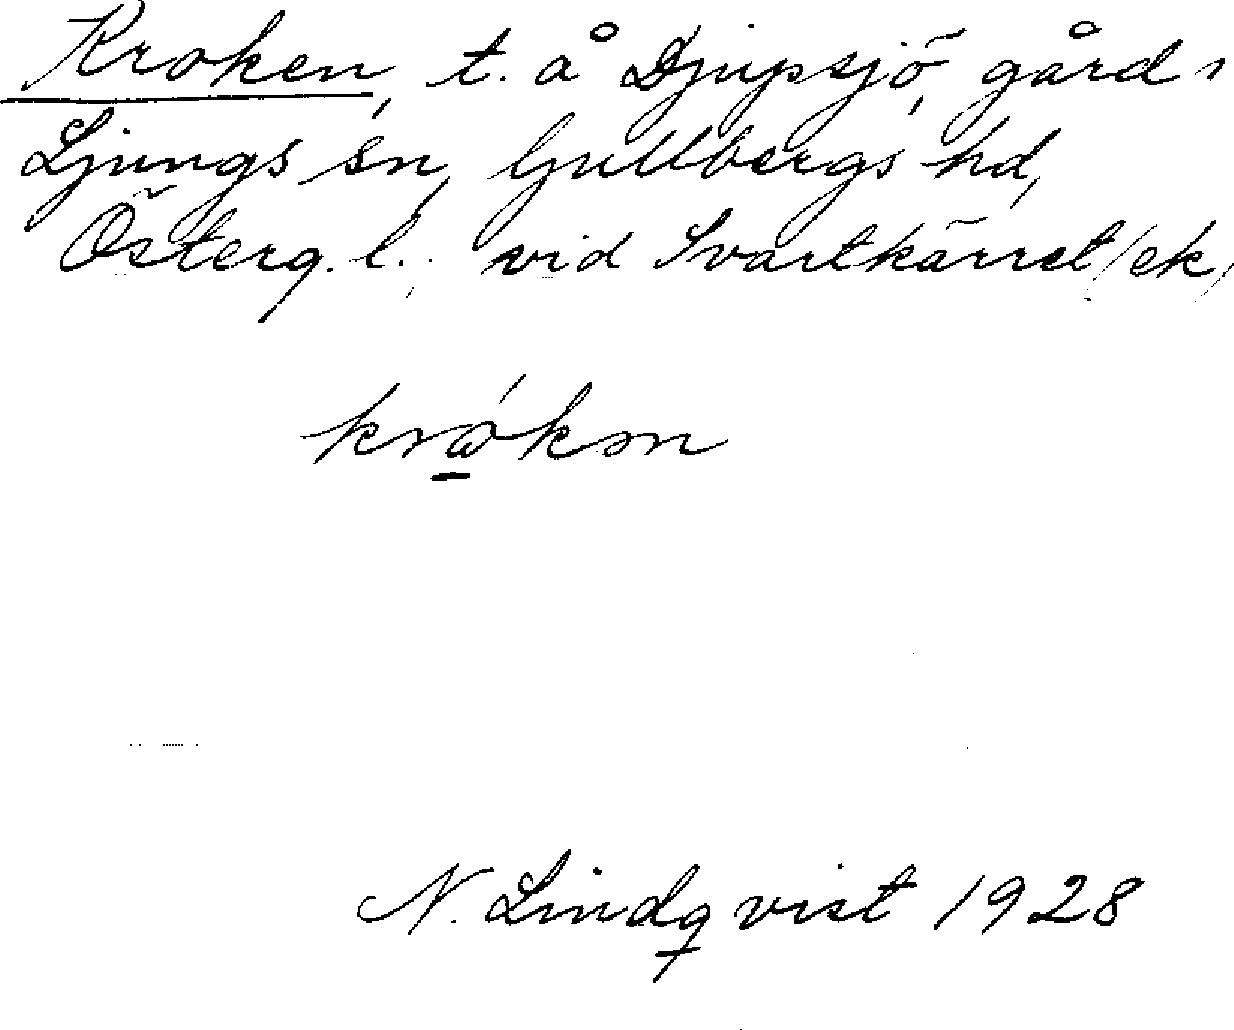 Kroken, t. å Djupsjö, gård i
Ljungs sn, Gullbergs hd,
Österg. l. vid Svartkärret (ek)
krώ̲kən
N. Lindqvist 1928